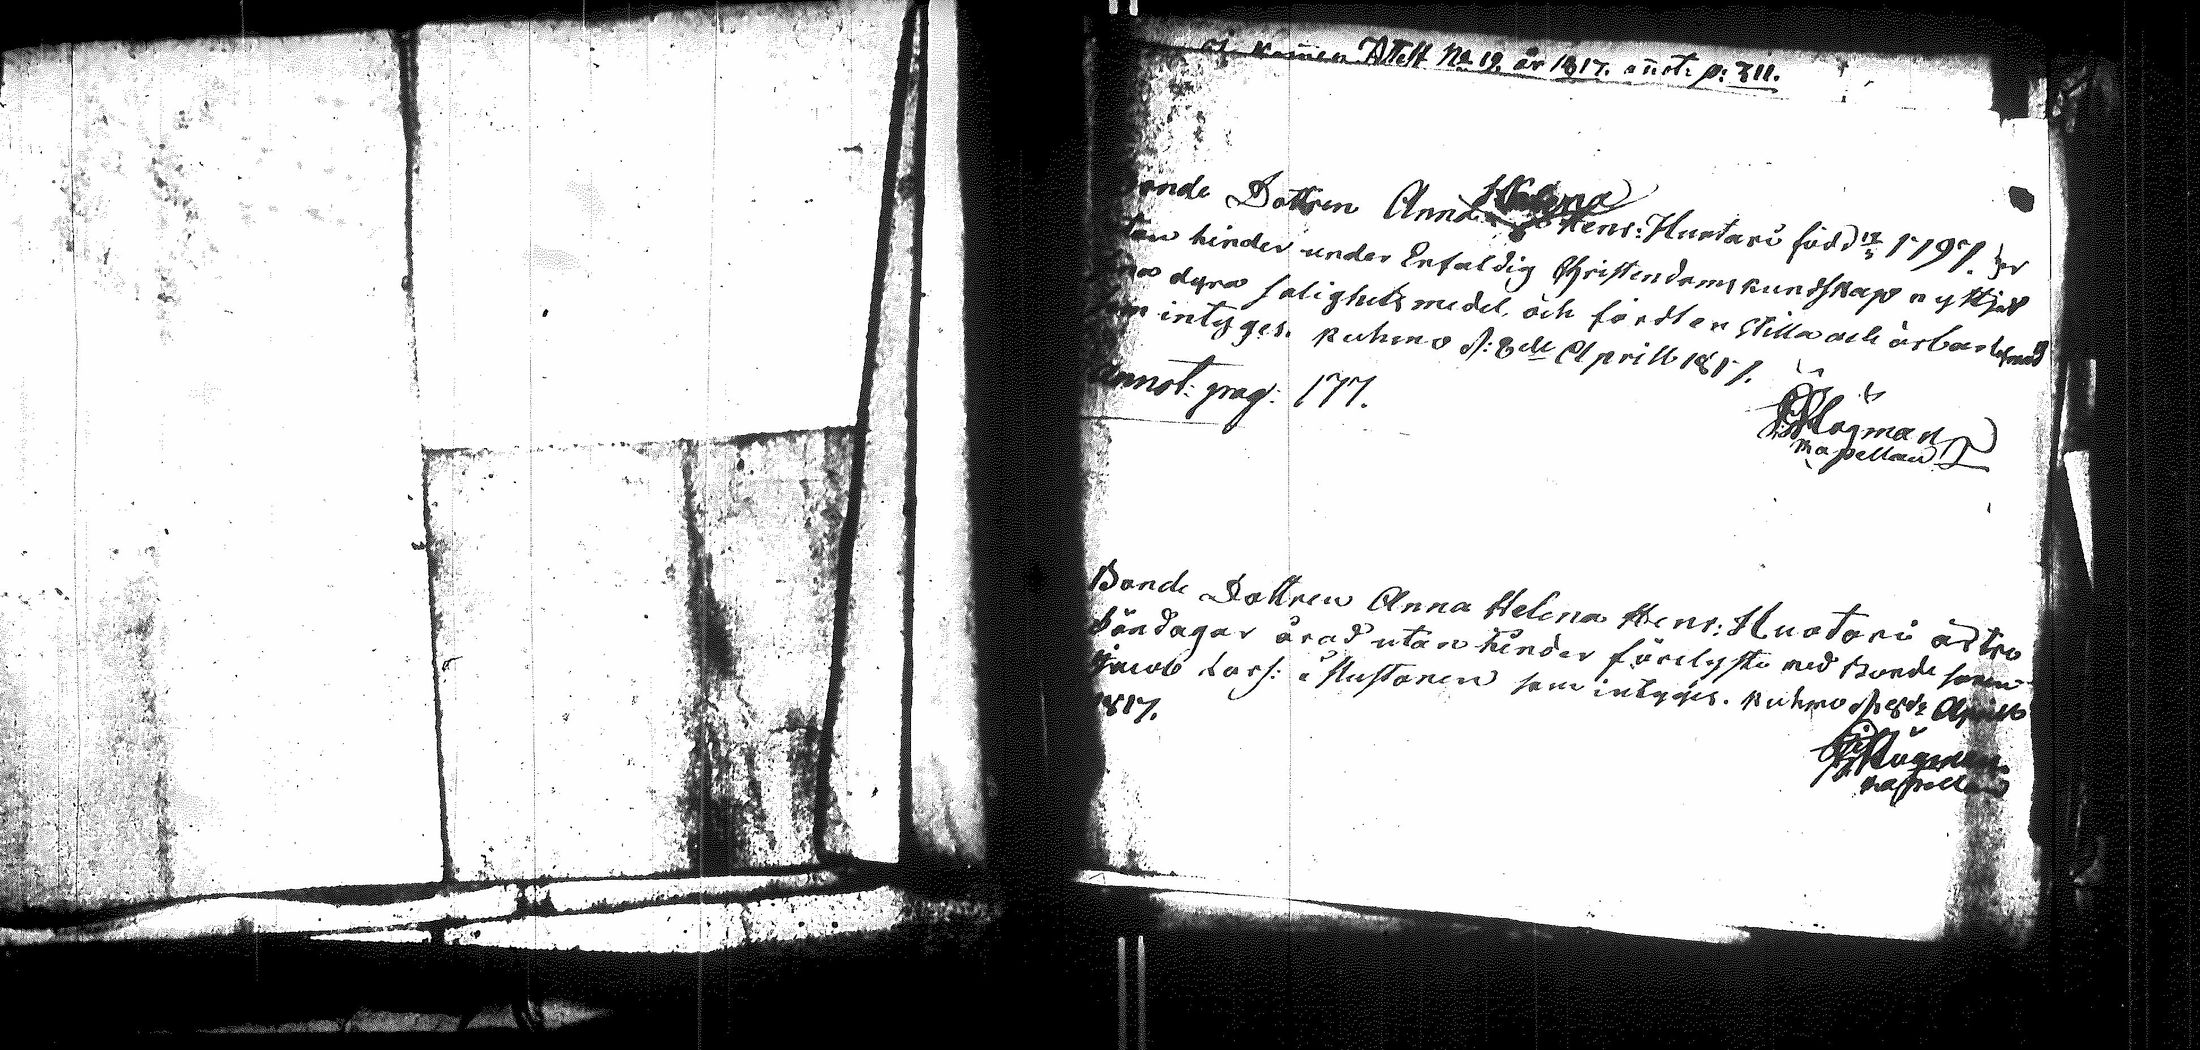 kommen Attest No 19. år 1817. annot: p: 311.
Bonde Dottren Anna Helena Henr: Huotari född 12/5 1797. har
utan hinder under Enfaldig Christendoms kundskap nyttjat
dyra salighets medel, och fördt en stilla och ärbar lefnad
som intyges. Kuhmo d: 8de Aprill 1817.
Annot: pag: 177.
Högman
Kapellan
Bonde Dottren Anna Helena Henr: Huotari är tre
Söndagar å rad utan hinder förelyste med Bonde sonen
Jacob Lars: Mustonen som intyges. Kuhmo d: 8de Aprill
1817.
Högman
Kapellan